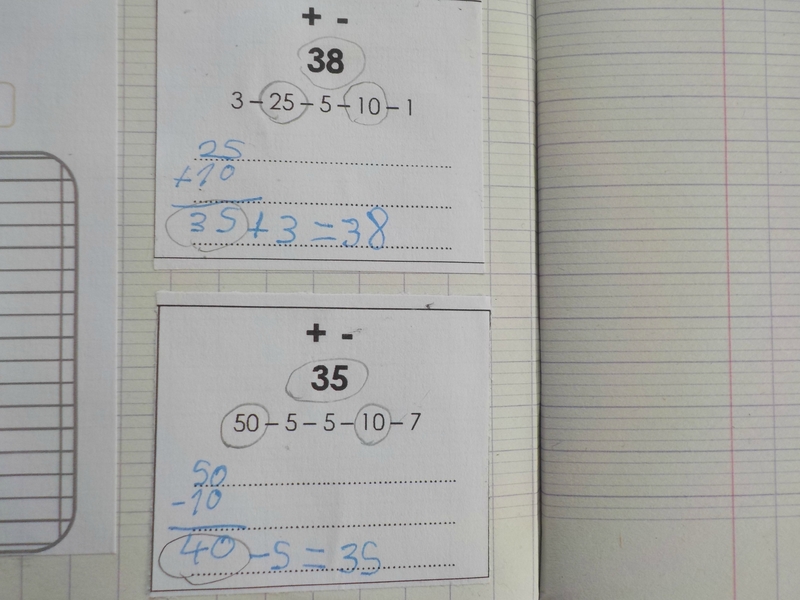 + -
38
3 – 25 – 5 – 10 – 1
25
+10
35 + 3 = 38
+ -
35
50 – 5 – 5 – 10 – 7
50
-10
40 - 5 = 35